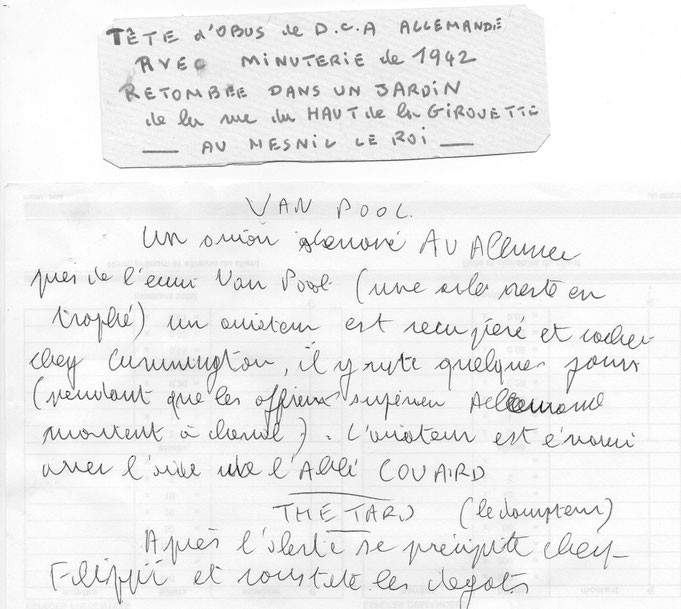 TÊTE d'OBUS de D.C.A ALLEMANDE
AVEC MINUTERIE de 1942
RETOMBÉE DANS UN JARDIN
de la rue du HAUT de la GIROUETTE
AU MESNIL LE ROI
VAN POOL
un avion AU
près de l'écurie Van Pool (une aile reste en
trophé) un aviateur est recupéré et cacher
chez Cunnington, il y reste quelques jours
(pendant que les officiers supérieur Allemand
montent à cheval). L'aviateur est évanoui
avec l'aide de l'Abbé COUARD
THETARD (le dompteur)
Après l'alerte se précipite chez
Filippi et constate les degats